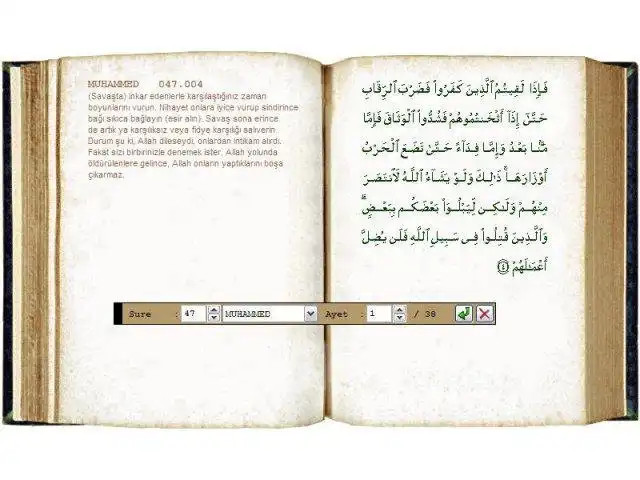 MUHAMMED 047.004
(Savaşta) inkar edenlerle karşılaştığınız zaman
boyunlarını vurun. Nihayet onlara iyice vurup sindirince
bağı sıkıca bağlayın (esir alın). Savaş sona erince
de artık ya karşılıksız veya fidye karşılığı salıverin.
Durum şu ki, Allah dileseydi, onlardan intikam alırdı.
Fakat sizi birbirinizle denemek ister. Allah yolunda
öldürülenlere gelince, Allah onların yaptıklarını boşa
çıkarmaz.
فَإِذَا لَقِيتُمُ ٱلَّذِينَ كَفَرُوا۟ فَضَرْبَ ٱلرِّقَابِ
حَتَّىٰٓ إِذَآ أَثْخَنتُمُوهُمْ فَشُدُّوا۟ ٱلْوَثَاقَ فَإِمَّا
مَنًّۢا بَعْدُ وَإِمَّا فِدَآءً حَتَّىٰ تَضَعَ ٱلْحَرْبُ
أَوْزَارَهَا ۚ ذَٰلِكَ وَلَوْ يَشَآءُ ٱللَّهُ لَٱنتَصَرَ
مِنْهُمْ وَلَٰكِن لِّيَبْلُوَا۟ بَعْضَكُم بِبَعْضٍ ۗ
وَٱلَّذِينَ قُتِلُوا۟ فِى سَبِيلِ ٱللَّهِ فَلَن يُضِلَّ
أَعْمَٰلَهُمْ ﴿٤﴾
Sure : 47 MUHAMMED Ayet : 1 / 38